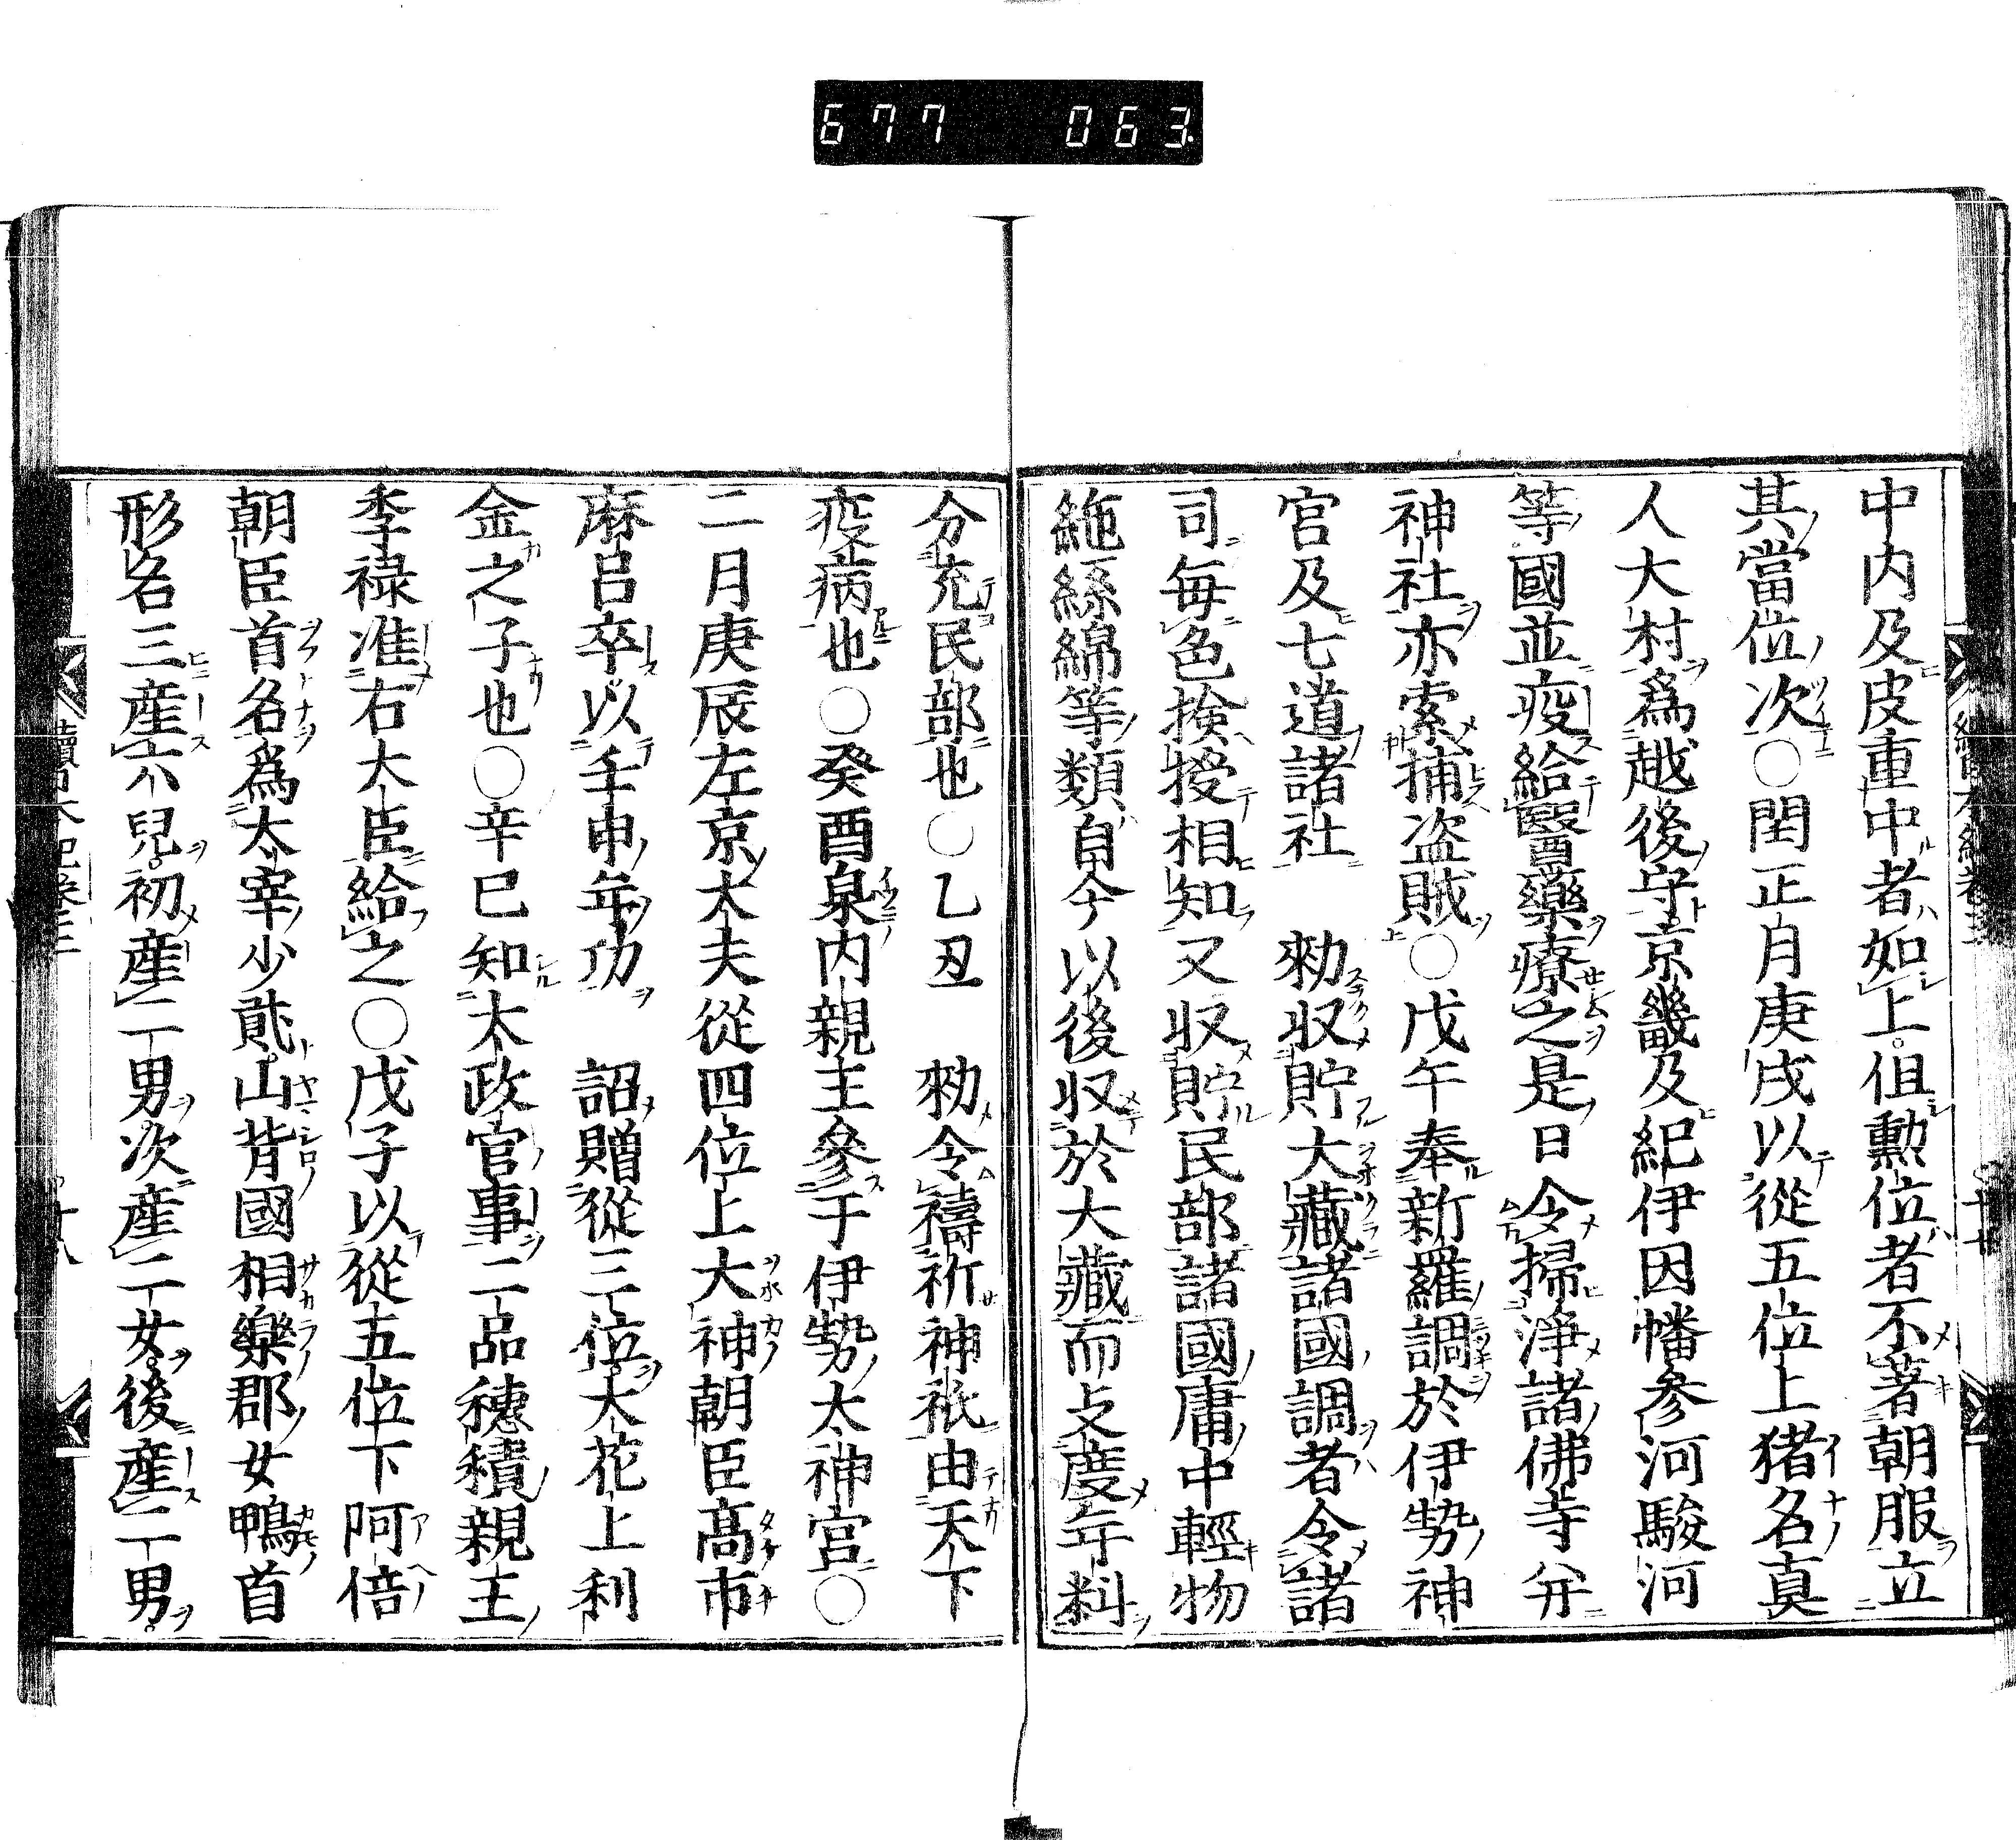 677 063
中内及皮重中者如上但勲位者不著朝服立
其當位次○閏正月庚戌以從五位上猪名真
人大村爲越後守京畿及紀伊因幡参河駿河
等國並疫給醫藥療之是日令掃浄諸佛寺并
神社亦索捕盗賊○戊午奉新羅調於伊勢神
官及七道諸社　勑収貯大藏諸國調者令諸
司毎色撿挍相知又収貯民部諸國庸中輕物
絁絲綿等類自今以後収於大藏而支度年料
分充民部也○乙丑　勑令禱祈神祇由天下
疫病也○癸酉泉内親王參于伊勢太神宮○
二月庚辰左京大夫從四位上大神朝臣髙市
麻呂卒以壬申年功　詔贈從三位大花上利
金之子也○辛巳知太政官事二品穂積親王
季禄准右大臣給之○戊子以從五位下阿倍
朝臣首名爲太宰少貳山背國相樂郡女鴨首
形名三産六兒初産二男次産二女後産二男